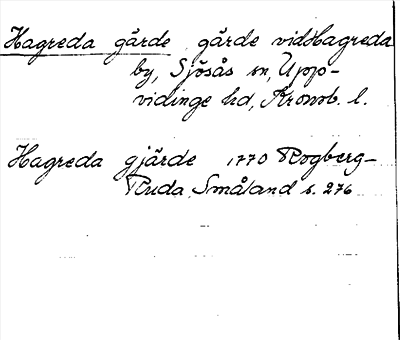 Hagreda gärde, gärde vid Hagreda
by, Sjösås sn, Uppvidinge hd, Kronob. l.
Hagreda gjärde 1770 Rogberg-
Ruda, Småland s. 276